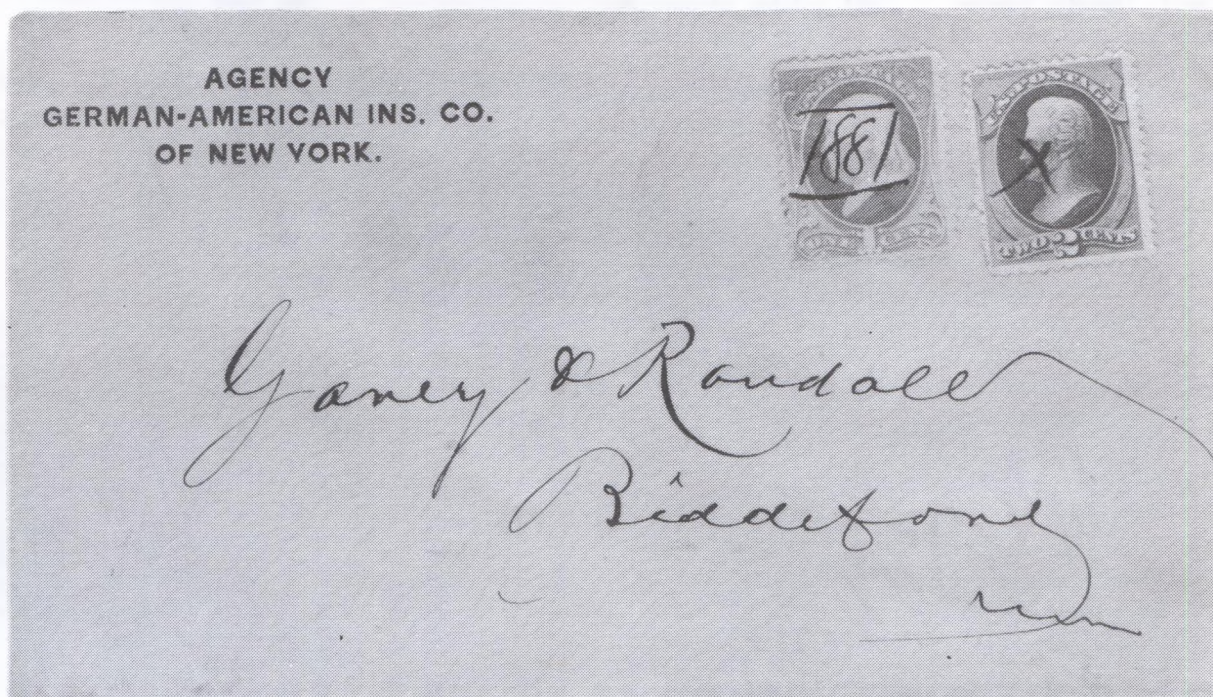 AGENCY
GERMAN-AMERICAN INS. CO.
OF NEW YORK.
U.S. POSTAGE
1881
ONE 1 CENT
U.S. POSTAGE
X
TWO 2 CENTS
& Randall
Biddeford